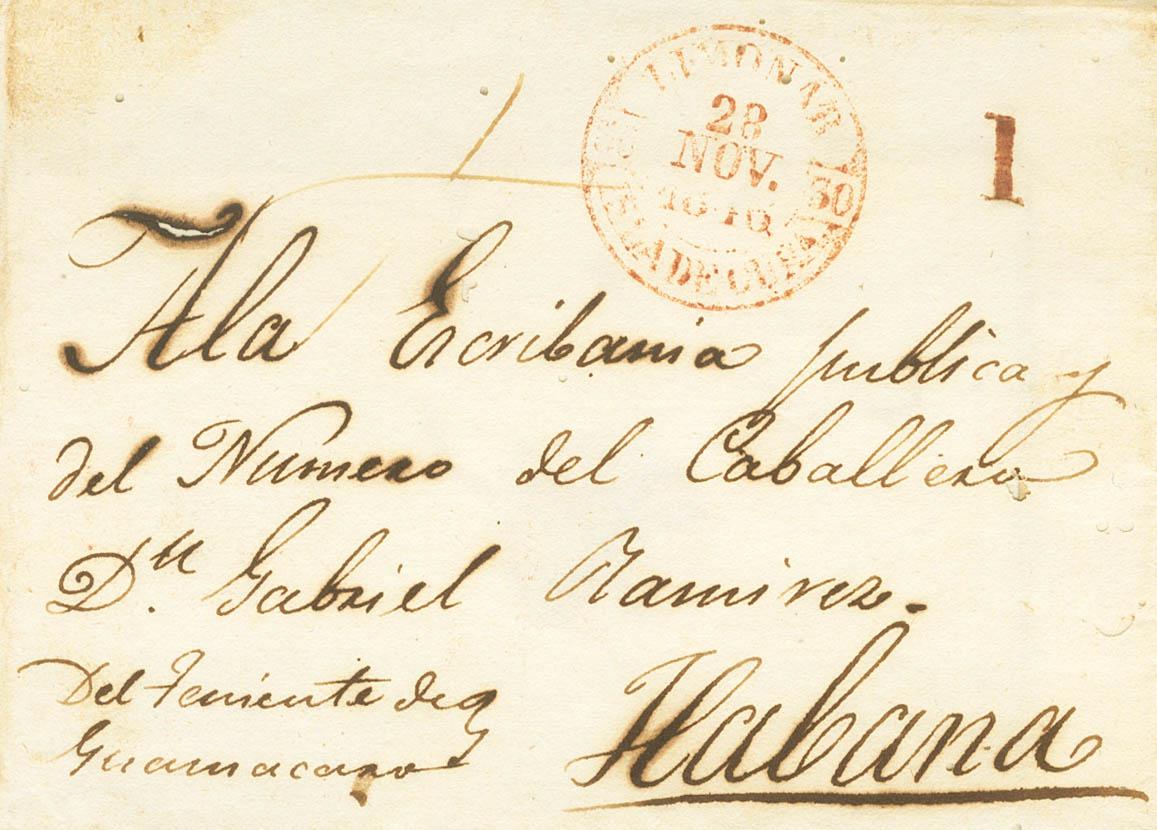 LIMONAR
28
NOV.
30
ISLA DE CUBA
1
A la Escribania publica y
del Numero del Caballero
Dn. Gabriel Ramirez.
Del Teniente de
Guamacaro
Habana